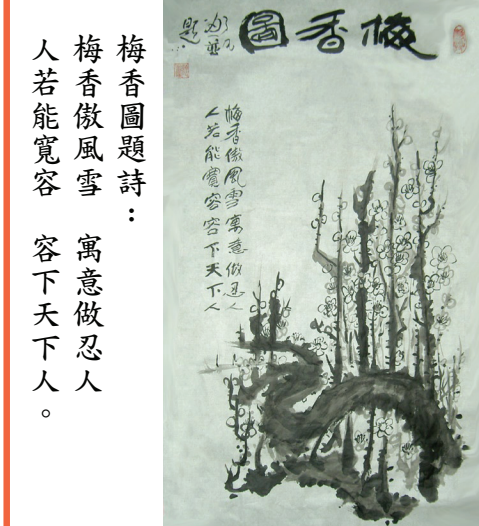 梅香圖題詩：
梅香傲風雪　寓意做忍人
人若能寬容　容下天下人。
梅香圖
題
梅香傲風雪寓意做忍人
人若能寬容容下天下人